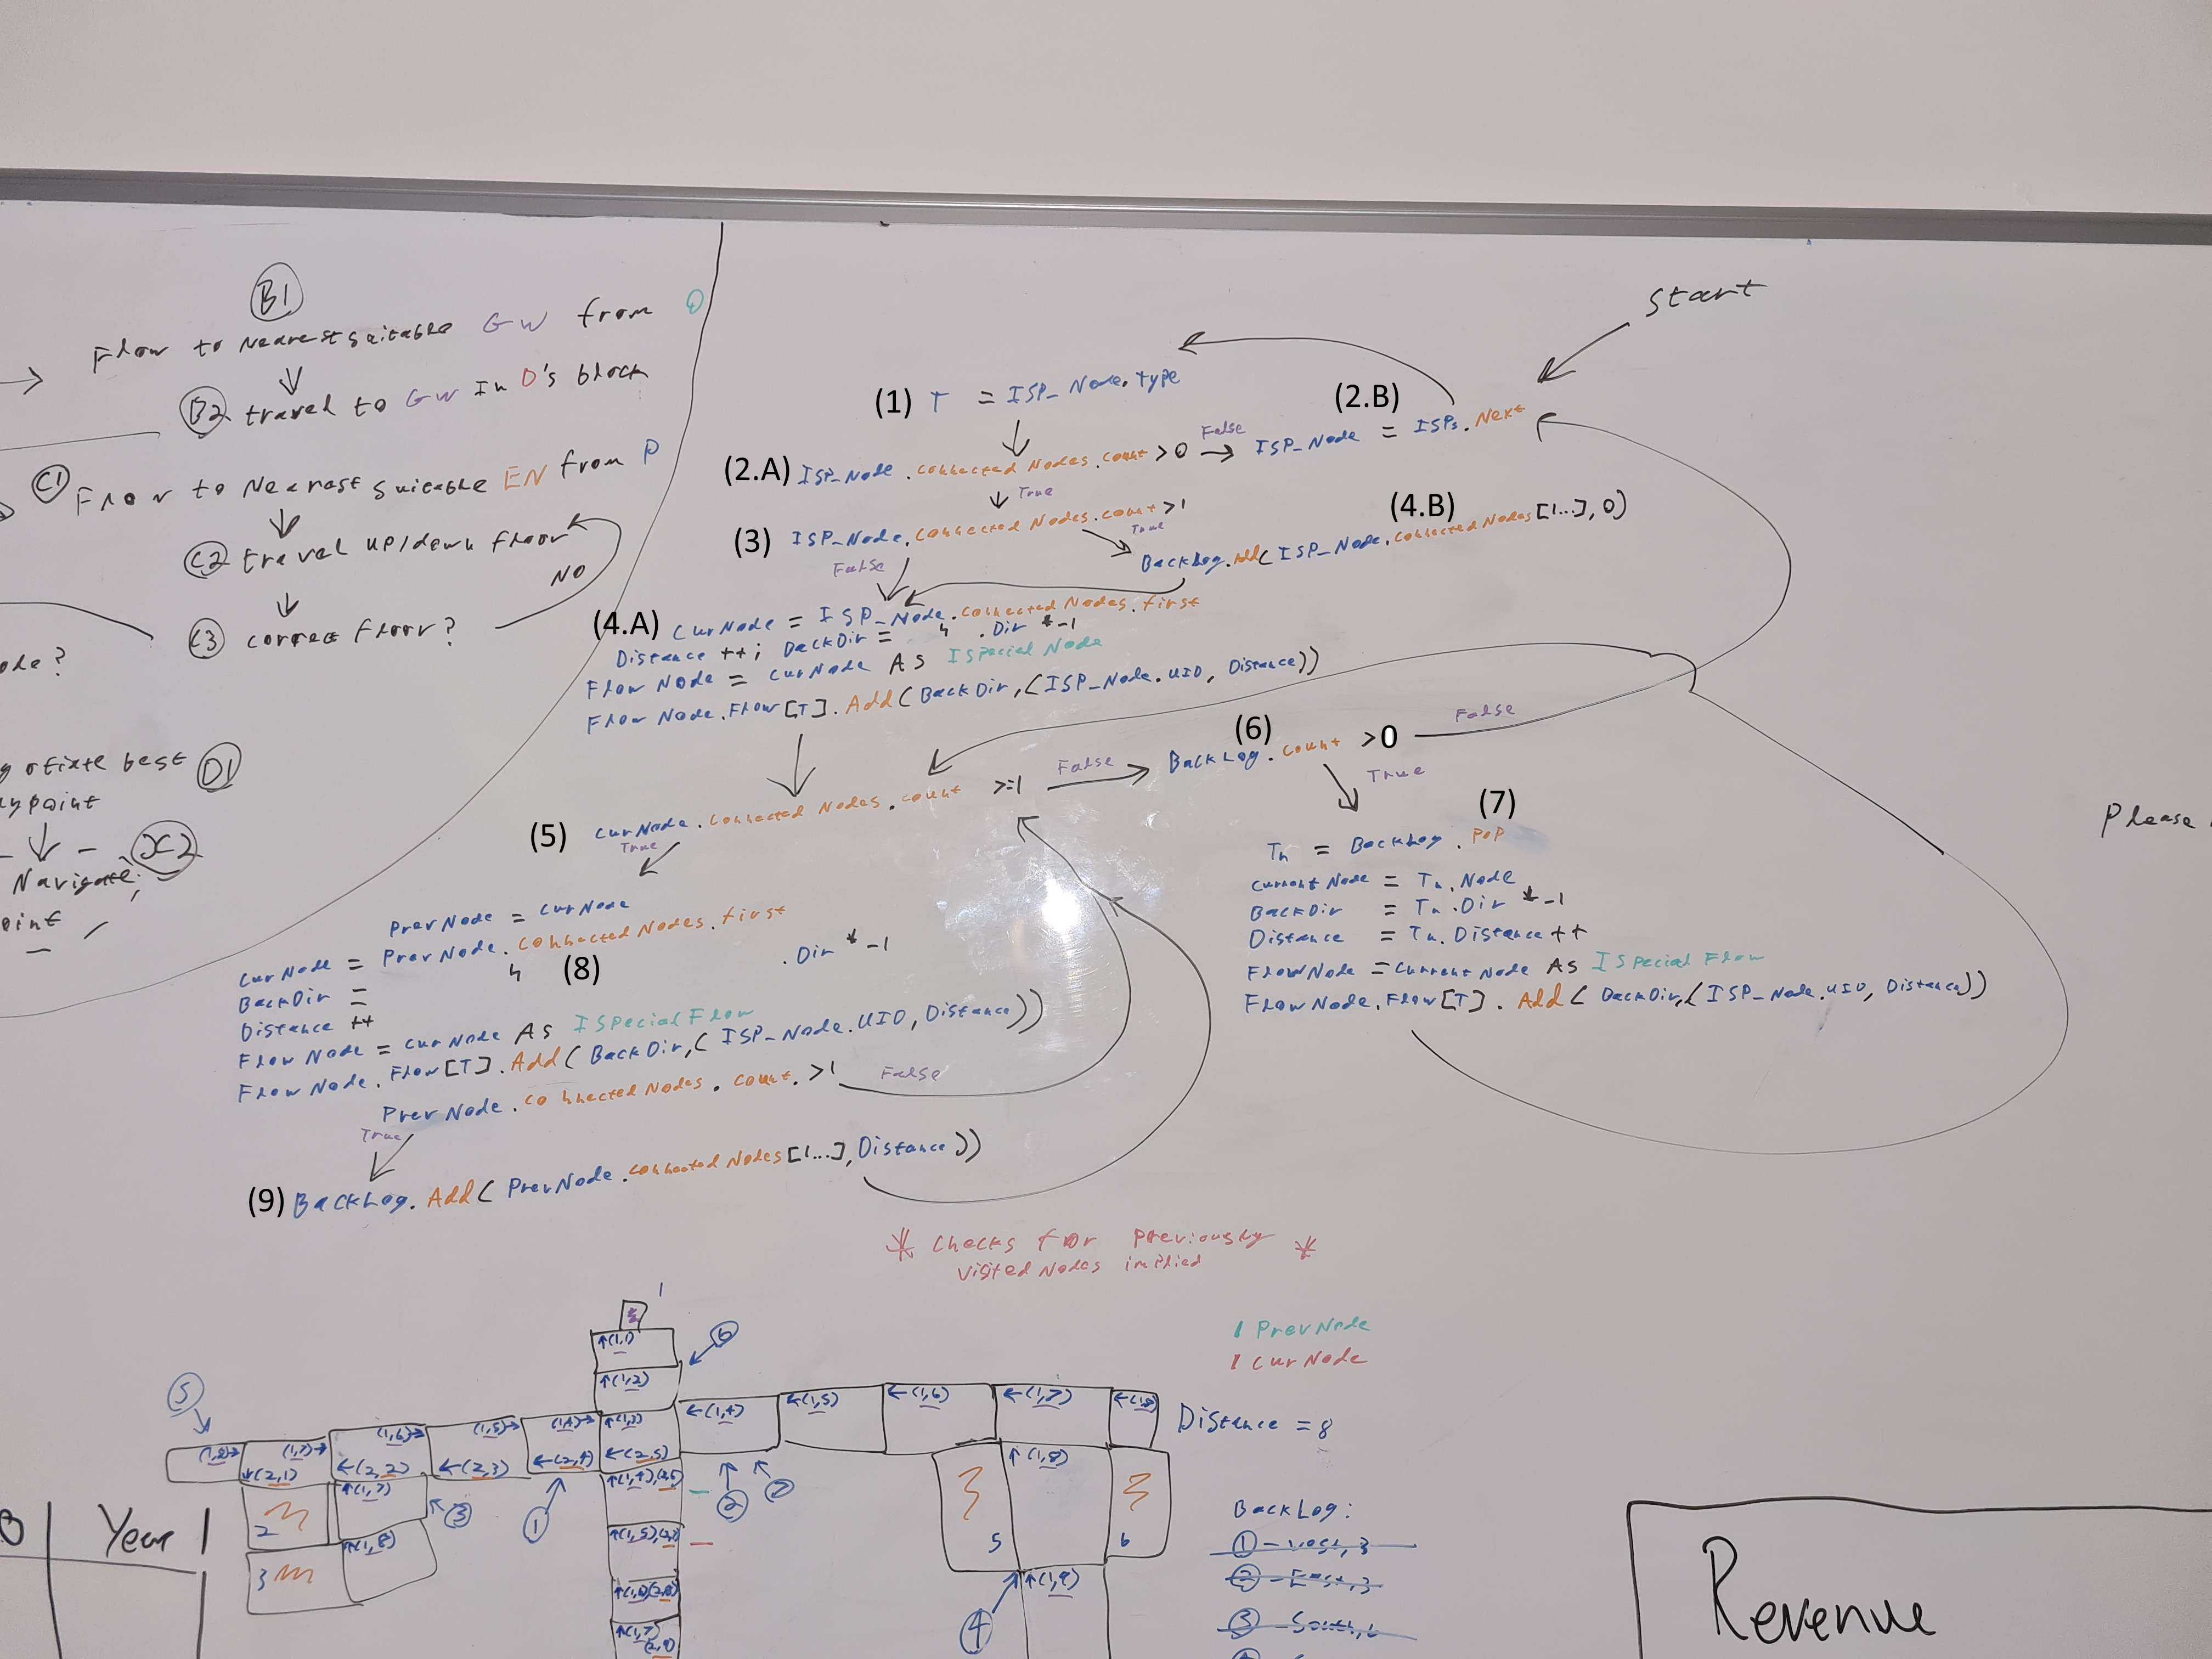 B1
Flow to Nearest suitable GW from O
B2 travel to GW In O's block
C1 Flow to Nearest suitable EN from P
C2 travel up/down floor
NO
C3 correct floor?
ode?
best D1
aypoint
X2
Navigate
oint
Start
(1) T = ISP_Node.type
(2.A) ISP_Node.connected Nodes.count > 0
False
(2.B) ISP_Node = ISPs.Next
True
(3) ISP_Node.connected Nodes.count > 1
True
False
(4.B) BackLog.Add(ISP_Node.connected Nodes[1...], 0)
(4.A) CurNode = ISP_Node.connected Nodes.first
Distance ++; BackDir = " .Dir * -1
Flow Node = CurNode As ISpecial Node
Flow Node.Flow[T].Add(BackDir,(ISP_Node.UID, Distance))
(5) CurNode.connected Nodes.count >=1
False
True
(6) BackLog.count >0
False
True
(7)
Tn = BackLog.Pop
Current Node = Tn.Node
BackDir = Tn.Dir * -1
Distance = Tn.Distance ++
FlowNode = Current Node As ISpecial Flow
Flow Node.Flow[T].Add(BackDir,(ISP_Node.UID, Distance))
PrevNode = CurNode
CurNode = PrevNode.connected Nodes.first
(8)
BackDir = " .Dir * -1
Distance ++
Flow Node = CurNode As ISpecial Flow
Flow Node.Flow[T].Add(BackDir,(ISP_Node.UID, Distance))
PrevNode.connected Nodes.count.>1
False
True
(9) BackLog.Add(PrevNode.connected Nodes[1...], Distance))
* Checks for previously *
visited Nodes implied
PrevNode
CurNode
Please
1
↑(1,1)
6
↑(1,2)
5
(1,8)→ (1,7)→ (1,6)→ (1,5)→ (1,4)→ ↑(1,3) ←(1,4) ←(1,5) ←(1,6) ←(1,7) ←(1,8)
Distance = 8
↓(2,1) ←(2,2) ←(2,3) ←(2,4) ←(2,5)
↑(1,7) ↑(1,4),(2,6) ↑(1,8)
2 3 1 2 7 5 6
↑(1,8) ↑(1,5),(2,7)
3
↑(1,6)(2,8) ↑(1,9)
↑(1,7)
(2,9)
4
BackLog:
1 - West, 3
2 - East, 3
3 - South, 6
Year 1
Revenue